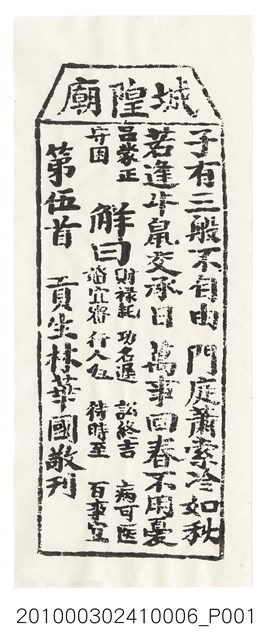 城隍廟
子有三般不自由 門庭蕭索冷如秋
若逢牛鼠交承日 萬事回春不用憂
呂蒙正守困
解曰
財祿耗 功名遲 訟終吉 病可醫
宜審 行人 待時至 百事宜
第伍首 貢生林華國敬刊
201000302410006_P001